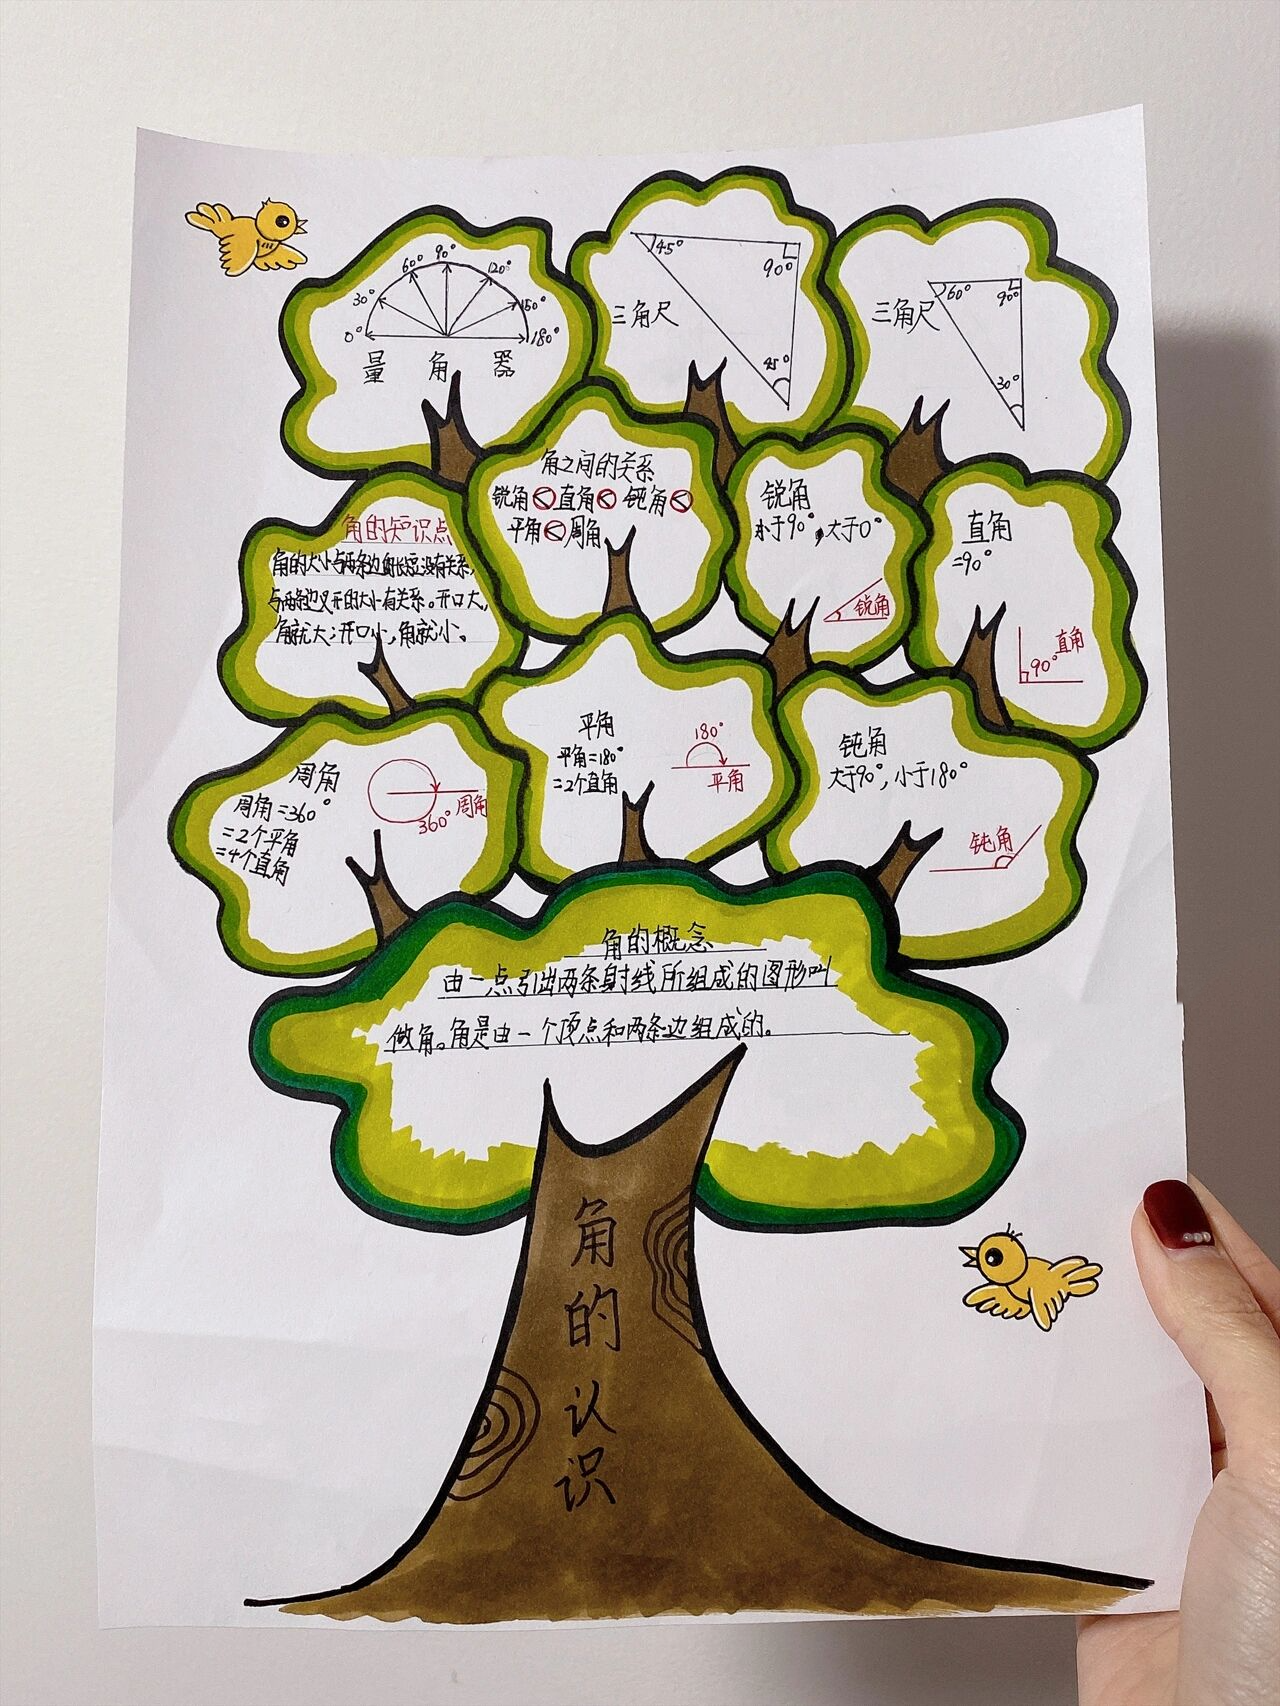 0°
30°
60°
90°
120°
150°
180°
量 角 器
三角尺
45°
90°
45°
三角尺
60°
90°
30°
角的知识点
角的大小与两条边的长短没有关系,
与两条边叉开的大小有关系。开口大,
角就大;开口小,角就小。
角之间的关系
锐角<直角<钝角<
平角<周角
锐角
小于90°,大于0°
锐角
直角
=90°
直角
90°
周角
周角=360°
=2个平角
=4个直角
360° 周角
平角
平角=180°
=2个直角
180°
平角
钝角
大于90°,小于180°
钝角
角的概念
由一点引出两条射线所组成的图形叫
做角。角是由一个顶点和两条边组成的。
角的认识